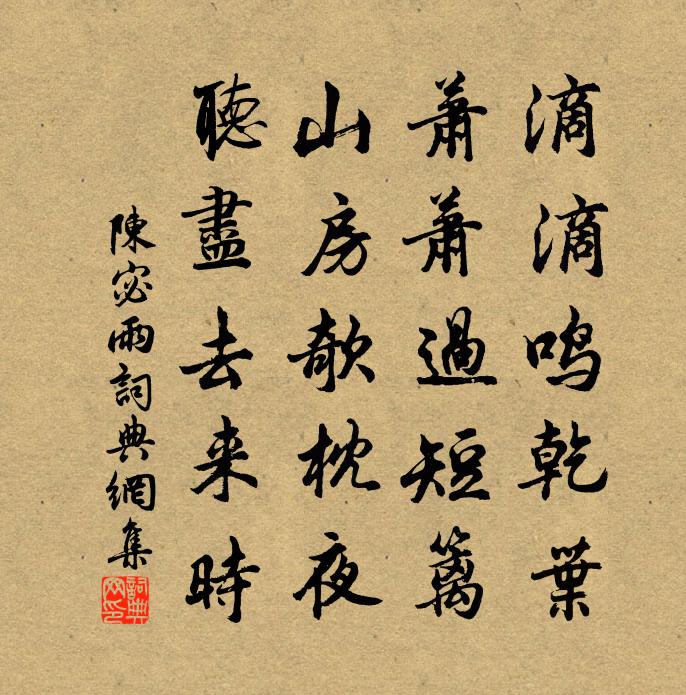 滴滴鳴乾葉
蕭蕭過短籬
山房欹枕夜
聽盡去来時
陳宓雨詞典網集
詞典網印